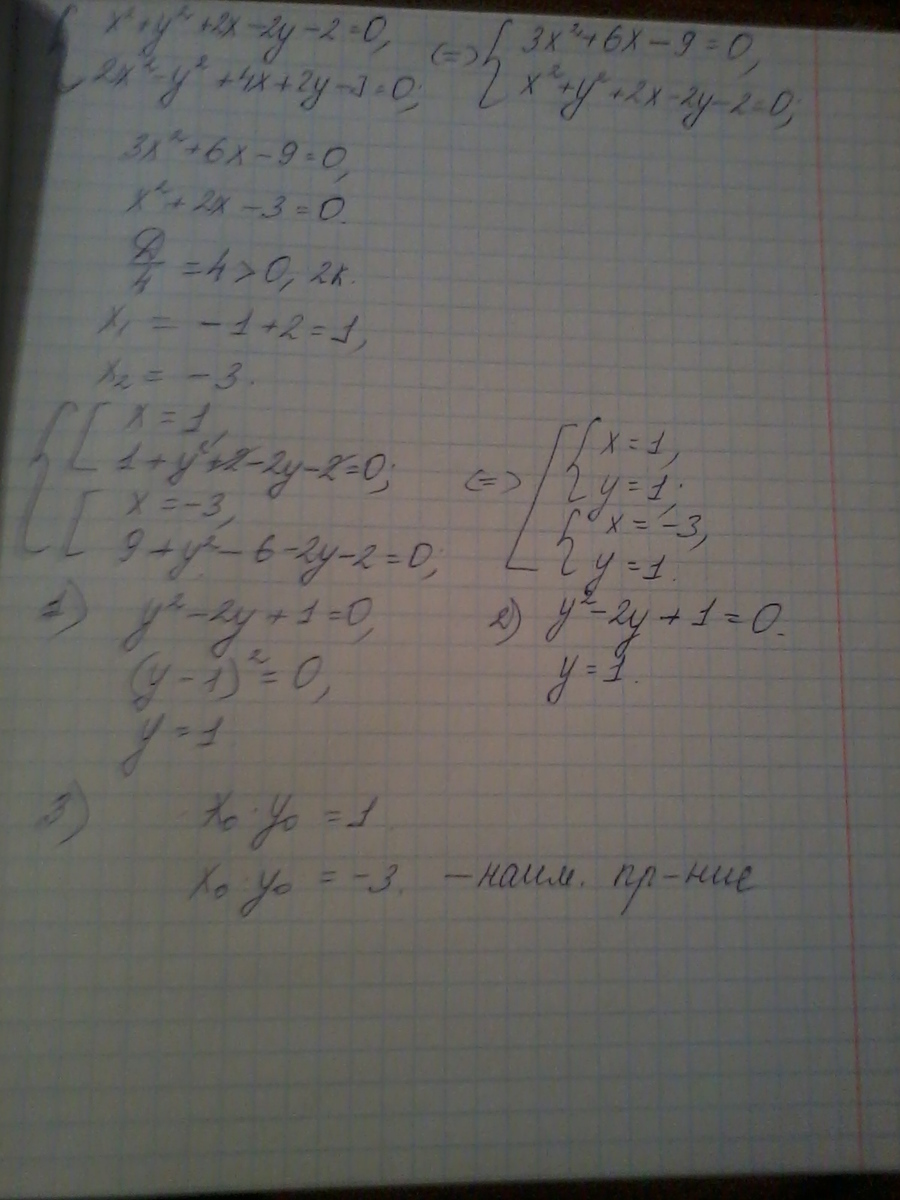 { x² + y² + 2x - 2y - 2 = 0, (=) { 3x² + 6x - 9 = 0,
2x² - y² + 4x + 2y - = 0; x² + y² + 2x - 2y - 2 = 0;
3x² + 6x - 9 = 0,
x² + 2x - 3 = 0.
D/4 = 4 > 0, 2к.
x₁ = -1 + 2 = 1,
x₂ = -3.
{ [ x = 1,
1 + y² + 2 - 2y - 2 = 0;
[ x = -3,
9 + y² - 6 - 2y - 2 = 0;
(=) [ { x = 1,
y = 1;
{ x = -3,
y = 1.
1) y² - 2y + 1 = 0,
(y - 1)² = 0,
y = 1
2) y² - 2y + 1 = 0.
y = 1.
3) x₀ · y₀ = 1
x₀ · y₀ = -3. - наим. пр-ние